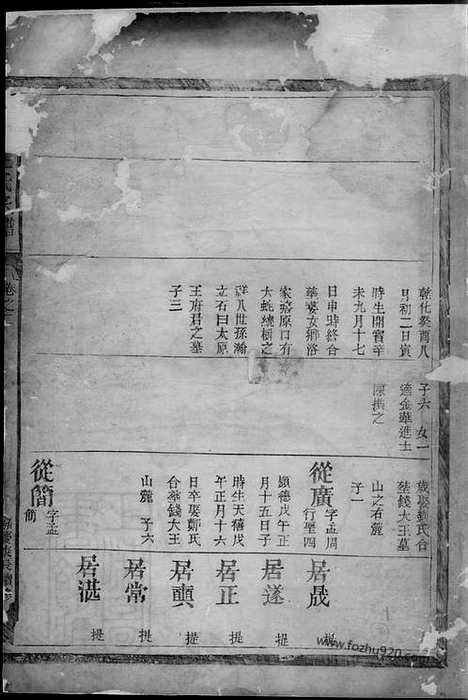 乾化癸酉八
月初二日寅
時生開寶辛
未九月十七
日申時終合
華婺女鄉洛
家塘原口有
大蛇繞樹之
群八世孫瀚
立石曰太原
王府君之墓
子三
子六 女一
適金華進士
陳撰之
歲娶錢氏合
塟錢大王墓
山之右麓
子一
從廣
字孟周
行聖四
顯德戊午正
月十五日子
時生天禧戊
午正月十六
日卒娶鄭氏
合塟錢大王
山麓 子六
從簡
字孟
簡
居晟
提
居遂
提
居正
提
居奭
提
居常
提
居湛
提
卷之
www.fozhu920.com